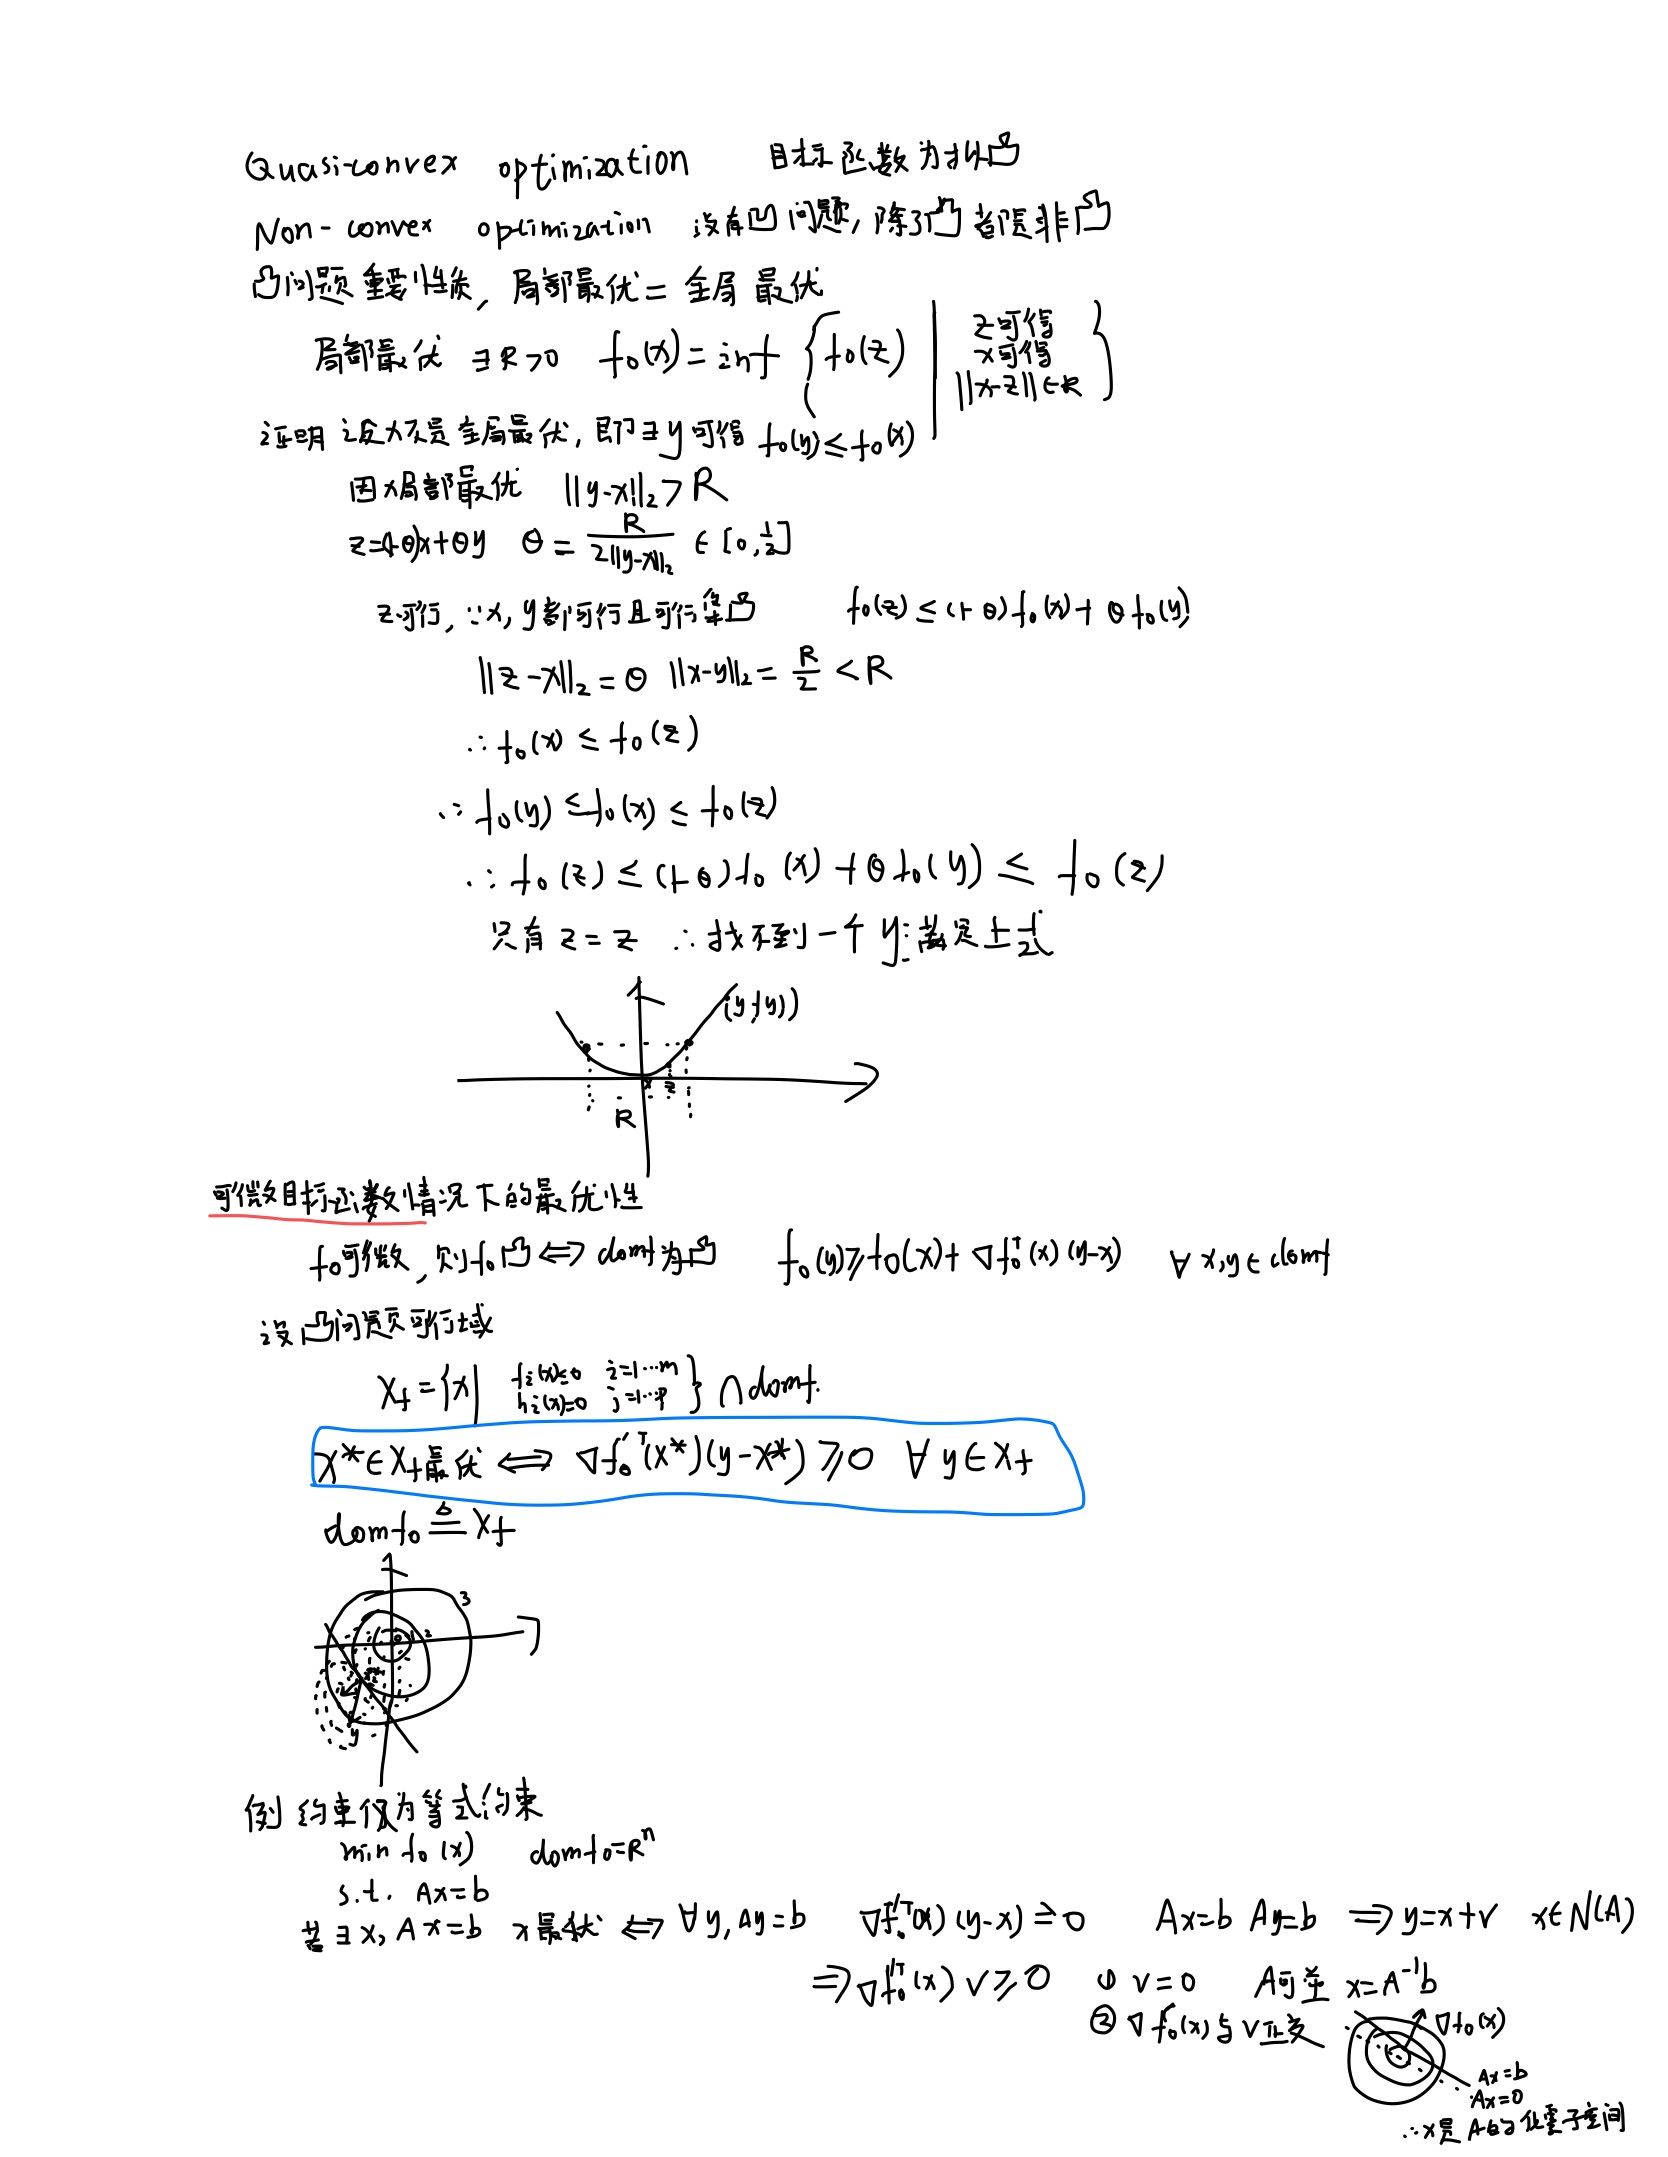 Quasi-convex optimization 目标函数为拟凸
Non-convex optimization 没有凹问题,除了凸都是非凸
凸问题重要性质,局部最优=全局最优
局部最优 ∃R>0 f₀(x)=inf{f₀(z) | z可得 x可得 ||x-z||∈R}
证明 设x不是全局最优,即∃y可得 f₀(y)≤f₀(x)
因x局部最优 ||y-x||₂>R
z=(1-θ)x+θy θ=R/(2||y-x||₂) ∈[0,1/2]
z可行,∵x,y都可行且可行集凸 f₀(z)≤(1-θ)f₀(x)+θf₀(y)
||z-x||₂=θ||x-y||₂=R/2<R
∴f₀(x)≤f₀(z)
∵f₀(y)≤f₀(x)≤f₀(z)
∴f₀(z)≤(1-θ)f₀(x)+θf₀(y)≤f₀(z)
只有z=z ∴找不到一个y满足上式
(y,f(y))
x z
R
可微目标函数情况下的最优性
f₀可微,则f₀凸⟺domf为凸 f₀(y)≥f₀(x)+∇f₀ᵀ(x)(y-x) ∀x,y∈domf
设凸问题可行域
X_f={x | fᵢ(x)≤0 i=1…m hᵢ(x)=0 j=1…p}∩domf.
x*∈X_f最优⟺∇f₀'ᵀ(x*)(y-x*)≥0 ∀y∈X_f
domf₀≜X_f
3
0 1 2
y
例 约束仅为等式约束
min f₀(x) domf₀=Rⁿ
s.t. Ax=b
若∃x,Ax=b x最优⟺∀y,Ay=b ∇f₀'ᵀ(x)(y-x)≥0 Ax=b Ay=b ⟹y=x+v x∈N(A)
⟹∇f₀'ᵀ(x)v≥0 ①v=0 A可逆 x=A⁻¹b
②∇f₀'(x)与v正交
∇f₀(x)
Ax=b
Ax=0
∴x是A的化零子空间